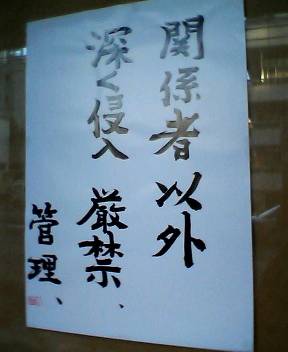 関係者以外
深く侵入厳禁、
管理、